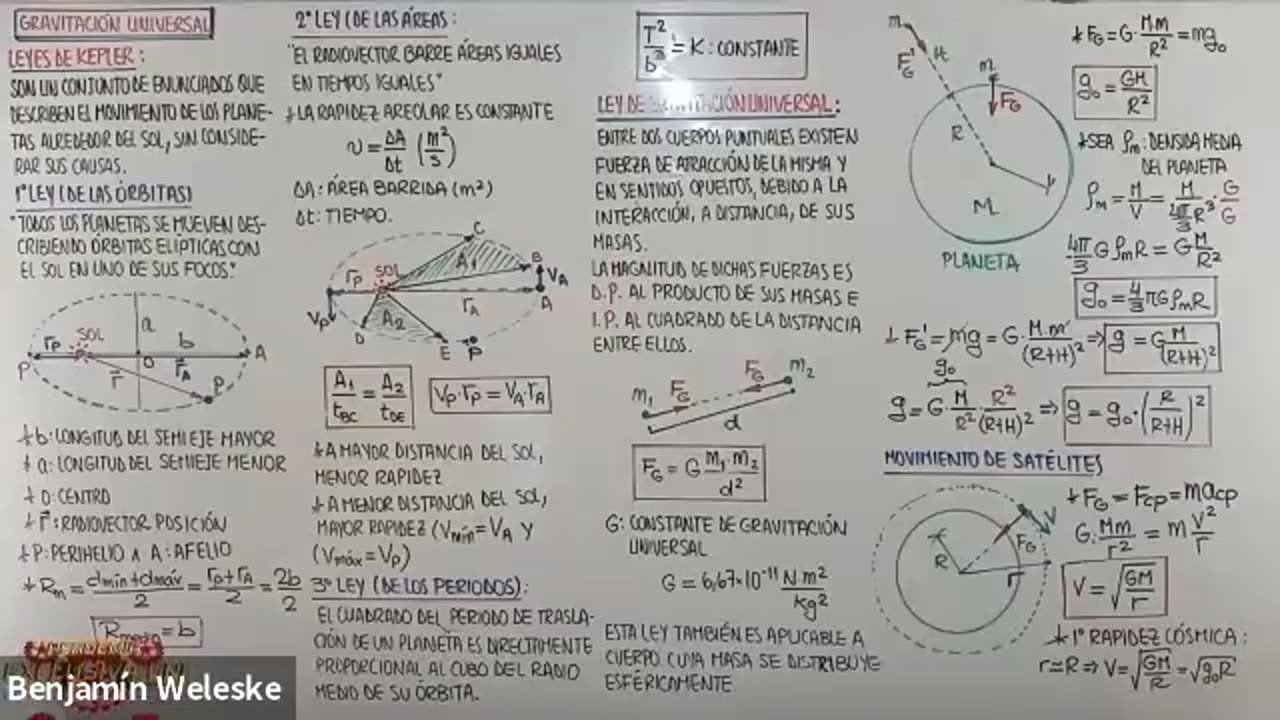 GRAVITACIÓN UNIVERSAL
LEYES DE KEPLER:
SON UN CONJUNTO DE ENUNCIADOS QUE
DESCRIBEN EL MOVIMIENTO DE LOS PLANE-
TAS ALREDEDOR DEL SOL, SIN CONSIDE-
RAR SUS CAUSAS.
1ª LEY (DE LAS ÓRBITAS)
"TODOS LOS PLANETAS SE MUEVEN DES-
CRIBIENDO ÓRBITAS ELÍPTICAS CON
EL SOL EN UNO DE SUS FOCOS."
SOL
a
b
rp
rA
P
O
A
r
P
* b: LONGITUD DEL SEMIEJE MAYOR
* a: LONGITUD DEL SEMIEJE MENOR
* O: CENTRO
* r: RADIOVECTOR POSICIÓN
* P: PERIHELIO ∧ A: AFELIO
* Rm = (dmín + dmáx)/2 = (rp + rA)/2 = 2b/2
Rmedio = b
Benjamín Weleske
2ª LEY (DE LAS ÁREAS:
"EL RADIOVECTOR BARRE ÁREAS IGUALES
EN TIEMPOS IGUALES"
* LA RAPIDEZ AREOLAR ES CONSTANTE
v = ΔA/Δt (m²/s)
ΔA: ÁREA BARRIDA (m²)
Δt: TIEMPO.
C
A1
B
VA
SOL
rp
rA
A
Vp
A2
D
E
P
A1/tBC = A2/tDE
Vp.rp = VA.rA
* A MAYOR DISTANCIA DEL SOL,
MENOR RAPIDEZ
* A MENOR DISTANCIA DEL SOL,
MAYOR RAPIDEZ (Vmín = VA Y
(Vmáx = Vp)
3ª LEY (DE LOS PERIODOS):
EL CUADRADO DEL PERIODO DE TRASLA-
CIÓN DE UN PLANETA ES DIRECTAMENTE
PROPORCIONAL AL CUBO DEL RADIO
MEDIO DE SU ÓRBITA.
T²/b³ = K: CONSTANTE
LEY DE GRAVITACIÓN UNIVERSAL:
ENTRE DOS CUERPOS PUNTUALES EXISTEN
FUERZA DE ATRACCIÓN DE LA MISMA Y
EN SENTIDOS OPUESTOS, DEBIDO A LA
INTERACCIÓN, A DISTANCIA, DE SUS
MASAS.
LA MAGNITUD DE DICHAS FUERZAS ES
D.P. AL PRODUCTO DE SUS MASAS E
I.P. AL CUADRADO DE LA DISTANCIA
ENTRE ELLOS.
m1
FG
FG
m2
d
FG = G m1.m2/d²
G: CONSTANTE DE GRAVITACIÓN
UNIVERSAL
G = 6,67*10⁻¹¹ N m²/kg²
ESTA LEY TAMBIÉN ES APLICABLE A
CUERPO CUYA MASA SE DISTRIBUYE
ESFÉRICAMENTE
m
F'G
H
m
FG
R
M
PLANETA
* FG = G. Mm/R² = mg₀
g₀ = GM/R²
* SEA ρm: DENSIDA MEDIA
DEL PLANETA
ρm = M/V = M/(4π/3 R³) . G/G
4π/3 G ρm R = G M/R²
g₀ = 4/3 π G ρm R
* F'G = mg = G. M.m/(R+H)² ⇒ g = G M/(R+H)²
g₀
g = G. M/R² . R²/(R+H)² ⇒ g = g₀.(R/(R+H))²
MOVIMIENTO DE SATÉLITES
V
FG
R
r
* FG = Fcp = macp
G. Mm/r² = m V²/r
V = √(GM/r)
* 1ª RAPIDEZ CÓSMICA:
r ≃ R ⇒ V = √(GM/R) = √(g₀R)